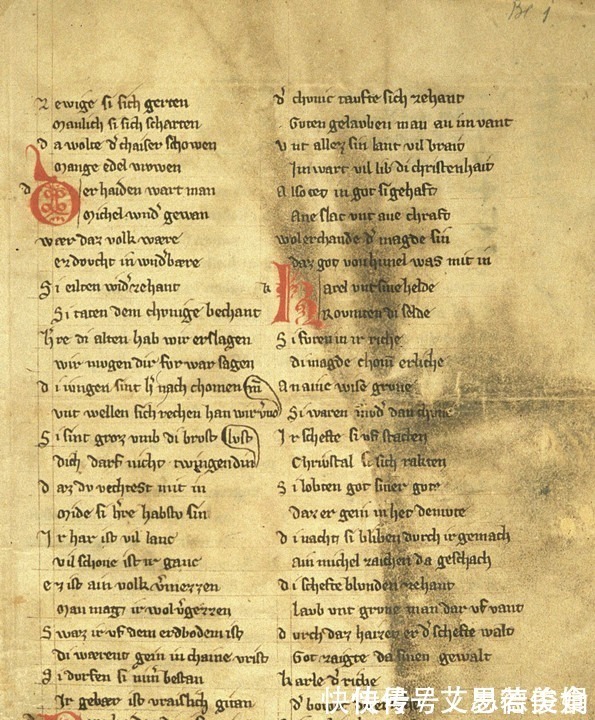 ewige si sich gerten
Manlich si sich scharten
d a wolte d̕ chaiser schowen
Mange edel vrowen
D er haiden wart man
Michel wnd̕ gewan
wær daz volk wære
er dovcht in wnd̕bære
S i eilten wid̕ zehant
Si taten dem chvnige bechant
h̕re di alten hab wir erslagen
wir mvgen dir for war sagen
d i ivngen sint h̕ nach chomen
vnt wellen sich rechen han wir
S i sint groz vmb di brvst
dich darf nicht twingen din lvst
d az dv vechtest mit in
Mide si h̕re habstv sin
I r har ist vil lanc
vil schone ist ir ganc
e z ist ain volk v̕mezzen
Man magz ir wol v̕gezzen
S waz ir vf dem erdbodem ist
di wærent gein in chaine vrist
a i dorfen si bestan
Ir gebær ist vraislich gitan
d̕ chvnic tavfte sich zehant
Goten gelavben man an im vant
V nt allez sin lant vil brait
Im wart vil lib di christenhait
A lso in got sigehaft
Ane slac vnt ane chraft
wol erchande d̕ magde sin
daz got von himel was mit in
K arel vnt sine helde
Rovmten di selde
S i foren in ir riche
di magde chom̄ erliche
A n ain wise grone
Si waren mvd̕ dan chone
I r schefte si vf stacten
Christal si sich racten
S i lobten got siner gote
Daz er gein in het demvte
d i nacht si bliben dvrch ir gemach
Ain michel zaichen da geschach
d i schefte blvnden zehant
Lavb vnt grone man dar vf vant
d vrch daz haizet er d̕ schefte walt
Got zaigte da sinen gewalt
k arle d̕ riche